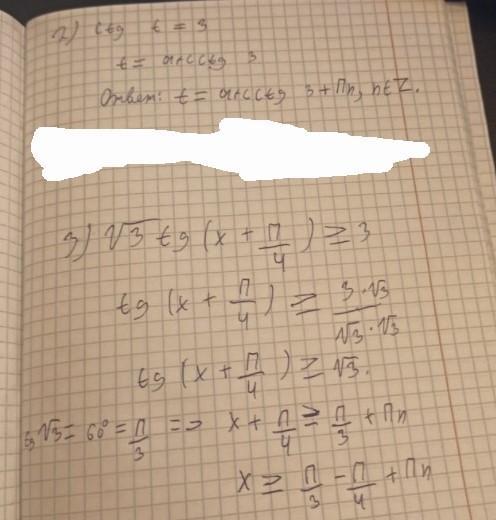 2) ctg t = 3
t = arcctg 3
Ответ: t = arcctg 3 + Пn, n ∈ Z.
3) √3 tg (x + П/4) ≥ 3
tg (x + П/4) ≥ 3·√3/√3·√3
tg (x + П/4) ≥ √3.
tg √3 = 60° = П/3 => x + П/4 ≥ П/3 + Пn
x ≥ П/3 - П/4 + Пn